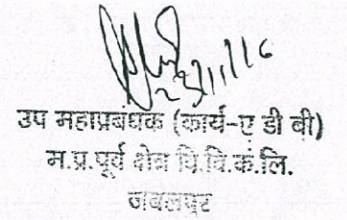 23/11/16
उप महाप्रबंधक (कार्य-ए डी बी)
म.प्र.पूर्व क्षेत्र वि.वि.कं.लि.
जबलपुर